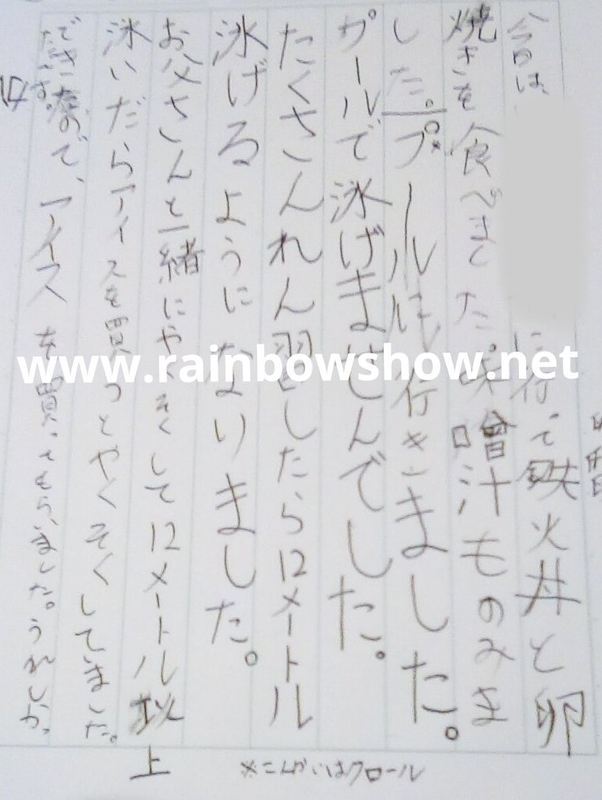 今日は、
に行って鉄火丼と卵
焼きを食べました。味噌汁ものみま
した。プールに行きました。
プールで泳げませんでした。
たくさんれん習したら12メートル
泳げるようになりました。
お父さんと一緒にやくそくして12メートル以上
泳いだらアイスを買うとやくそくしてました。
できたので、アイスを買ってもらいました。うれしか
※こんかいはクロール
www.rainbowshow.net